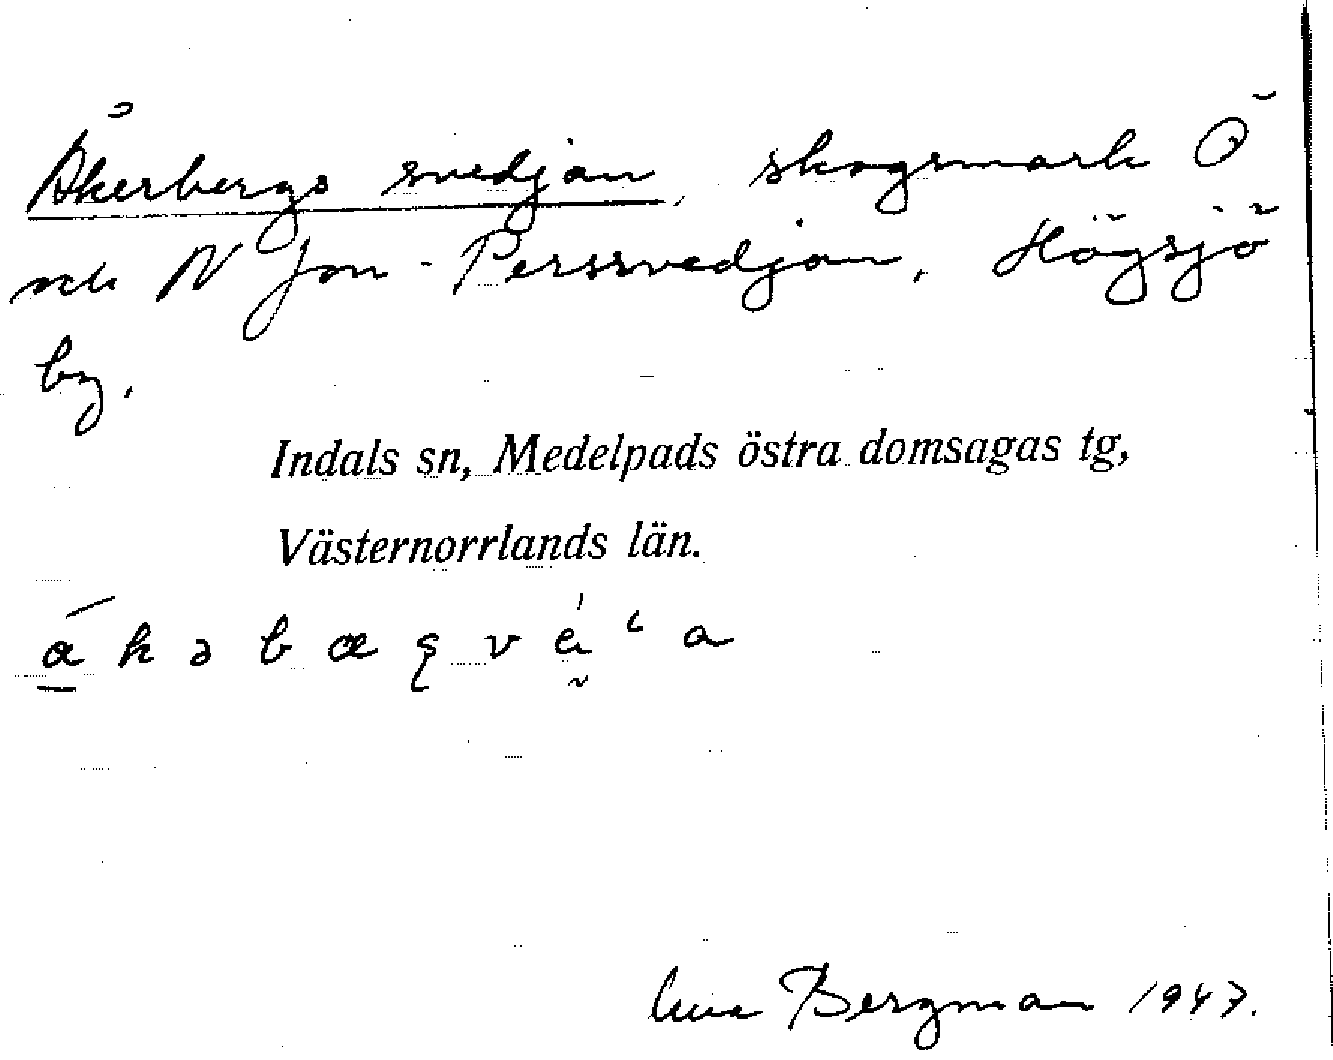 Åkerbergs svedjan, skogsmark Ö
och N Jon-Perssvedjan, Högsjö
by.
Indals sn, Medelpads östra domsagas tg,
Västernorrlands län.
Bergman 1947.